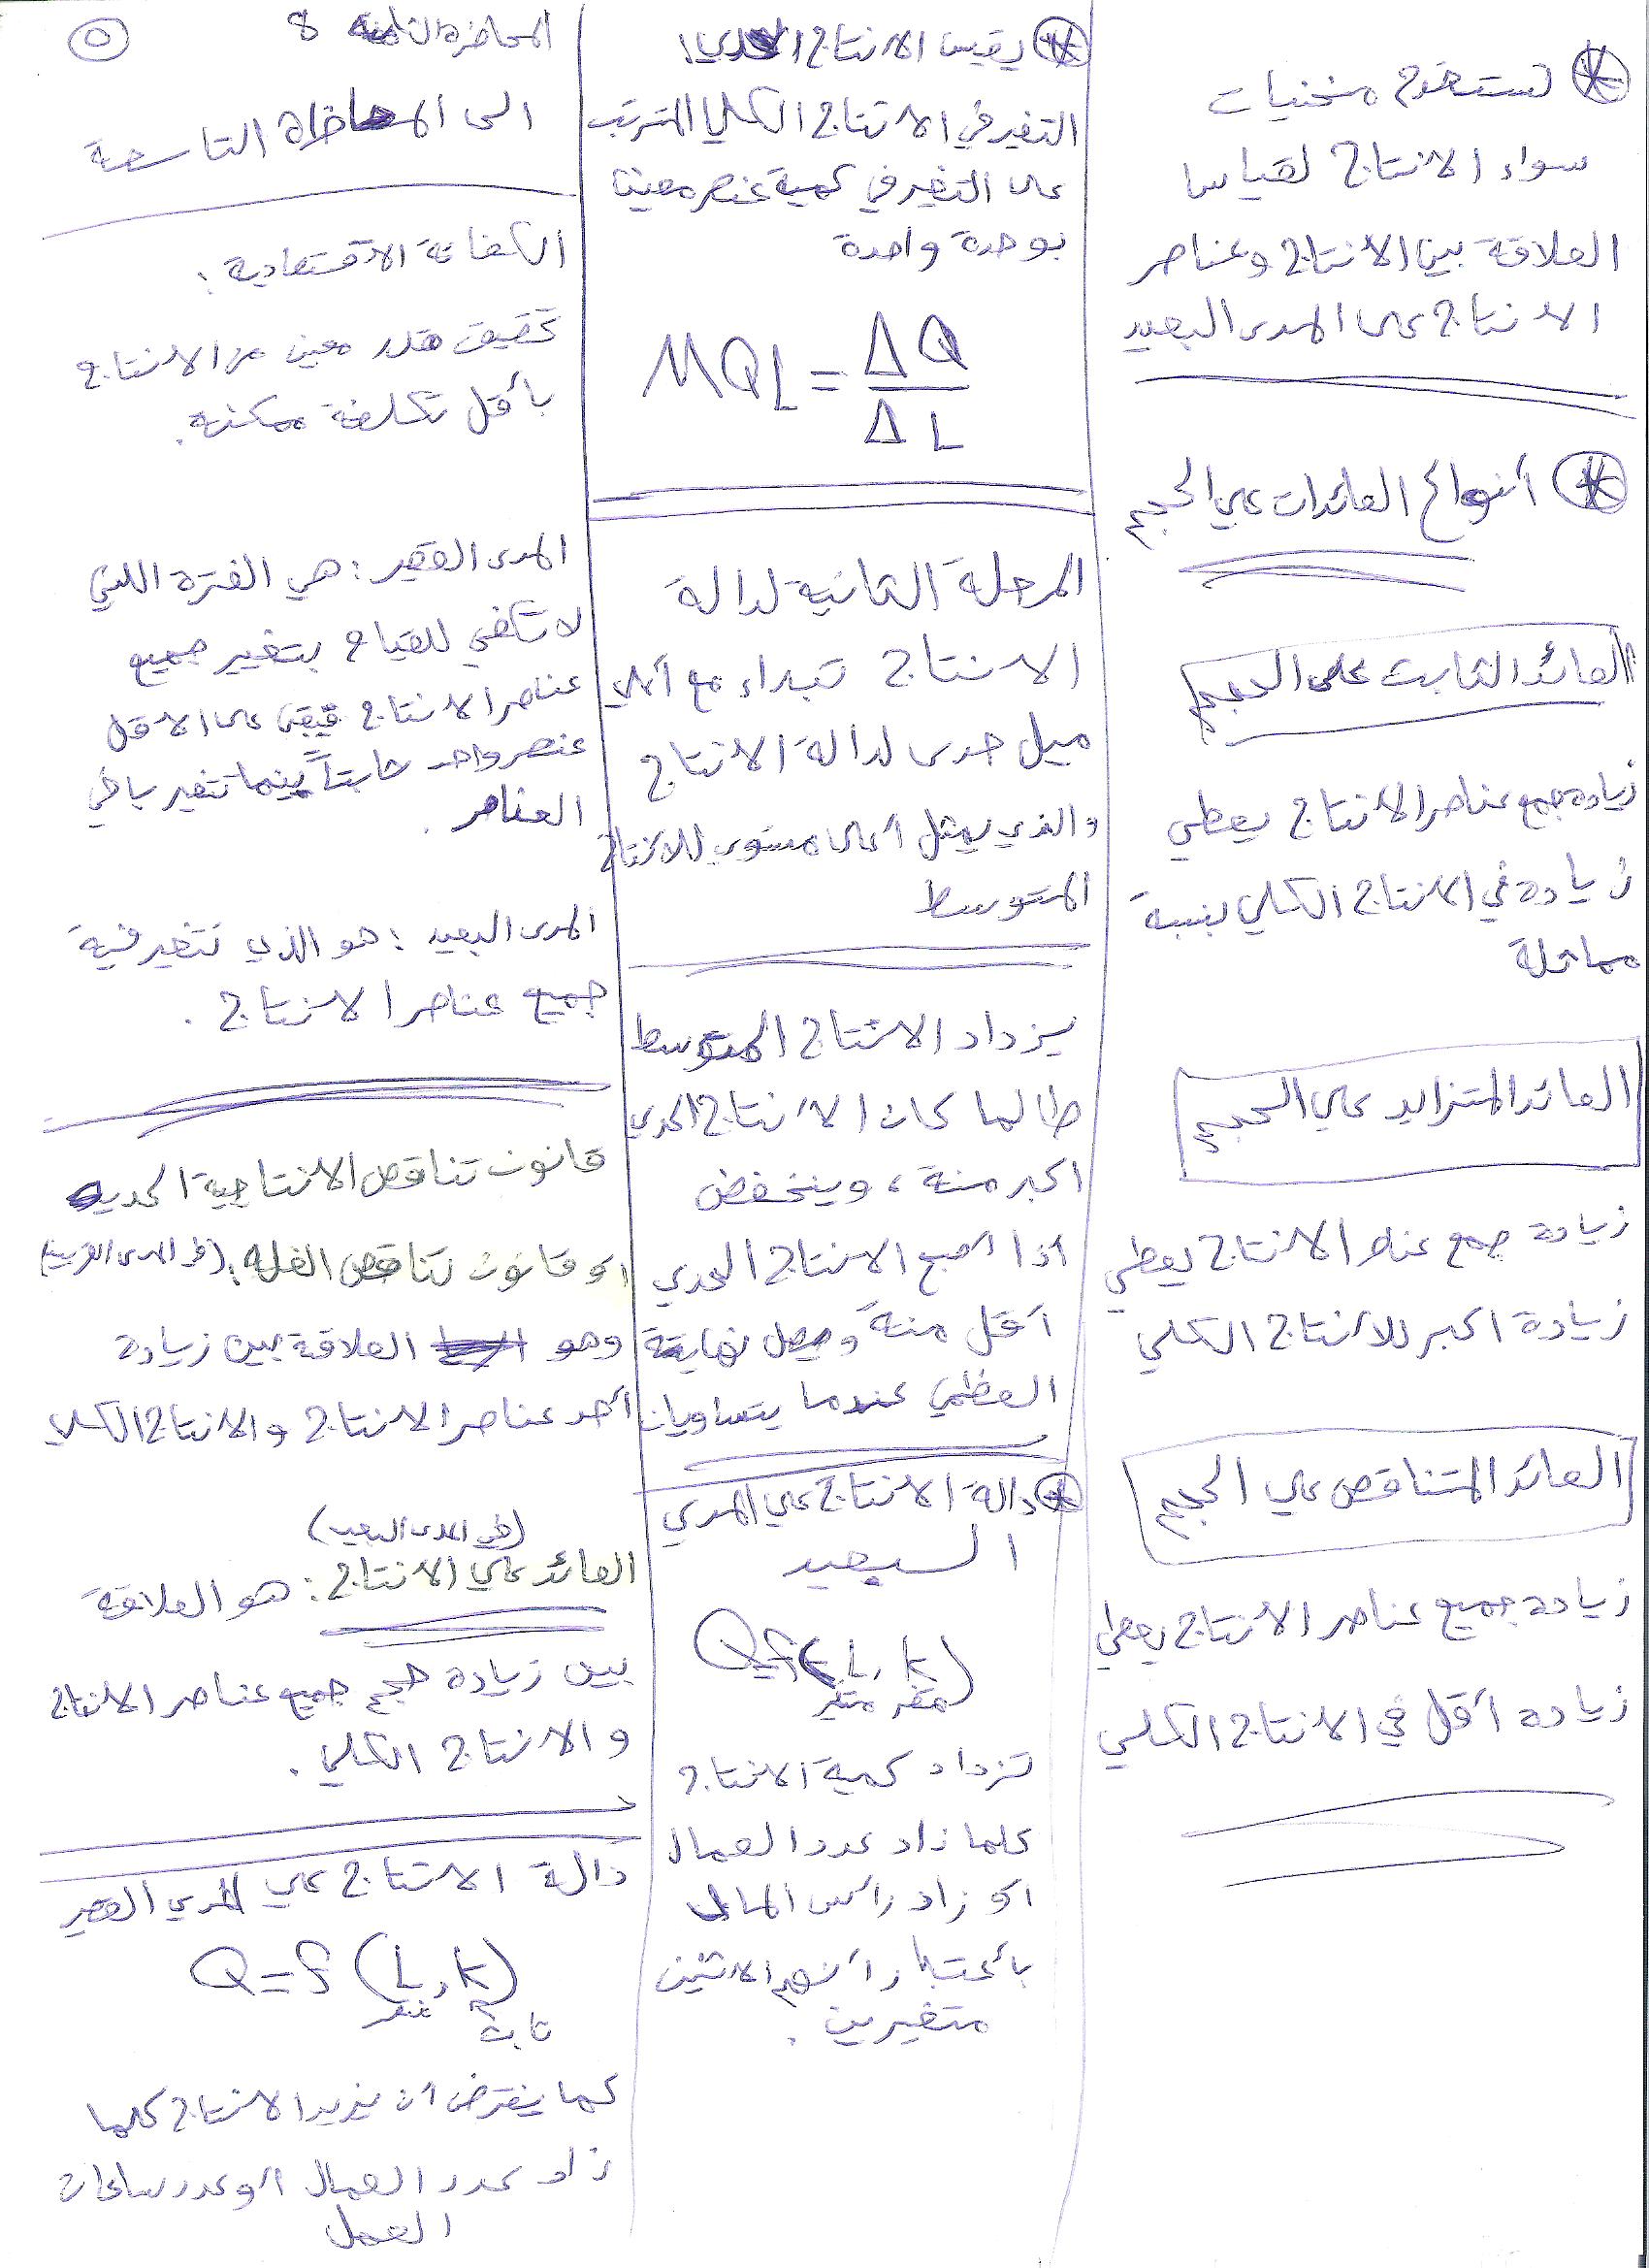 ٥
المحاضرة الثامنة 8
الى المحاضرة التاسعة
الكفائة الاقتصادية :
تحقيق قدر معين من الانتاج
بأقل تكلفة ممكنه .
المدى القصير : هي الفترة اللتي
لا تكفي للقيام بتغير جميع
عناصر الانتاج فيبقى على الاقل
عنصر واحد ثابتاً بينما تتغير باقي
العناصر .
المدى البعيد : هو الذي تتغير فية
جميع عناصر الانتاج .
قانون تناقص الانتاجية الحديه
او قانون تناقص الغله : (في المدى القريب)
وهو العلاقة بين زيادة
أحد عناصر الانتاج والانتاج الكلي
(في المدى البعيد)
العائد على الانتاج : هو العلاقة
بين زيادة حجم جميع عناصر الانتاج
والانتاج الكلي .
دالة الانتاج على المدي القصير
Q = f (L, k)
متغير ثابت
كما يفترض أن يزيد الانتاج كلما
زاد عدد العمال او عدد ساعات
العمل
يقيس الانتاج الحدي :
التغير في الانتاج الكلي المترتب
على التغير في كمية عنصر معين
بوحدة واحدة
MQL = ΔQ / ΔL
المرحلة الثانية لدالة
الانتاج تبداء مع أعلى
ميل حدى لدالة الانتاج
والذي يمثل أعلى مستوى للانتاج
المتوسط
يزداد الانتاج المتوسط
طالما كان الانتاج الحدي
اكبر منة ، وينخفض
اذا أصبح الانتاج الحدي
أقل منة ويصل نهايتة
العظمي عندما يتساويان
دالة الانتاج على المدي
البعيد
Q=f(L, k)
متغير متغير
تزداد كمية الانتاج
كلما زاد عدد العمال
او زاد رأس المال
بأعتبار أنهم الاثنين
متغيرين .
تستخدم منحنيات
سواء الانتاج لقياس
العلاقة بين الانتاج وعناصر
الانتاج على المدى البعيد
أنواع العائدات على الحجم
العائد الثابت على الحجم
زيادة جمع عناصر الانتاج يعطي
زيادة في الانتاج الكلي بنسبة
مماثلة
العائد المتزايد على الحجم
زيادة جمع عناصر الانتاج يعطي
زيادة اكبر للانتاج الكلي
العائد المتناقص على الحجم
زيادة جميع عناصر الانتاج يعطي
زيادة أقل في الانتاج الكلي